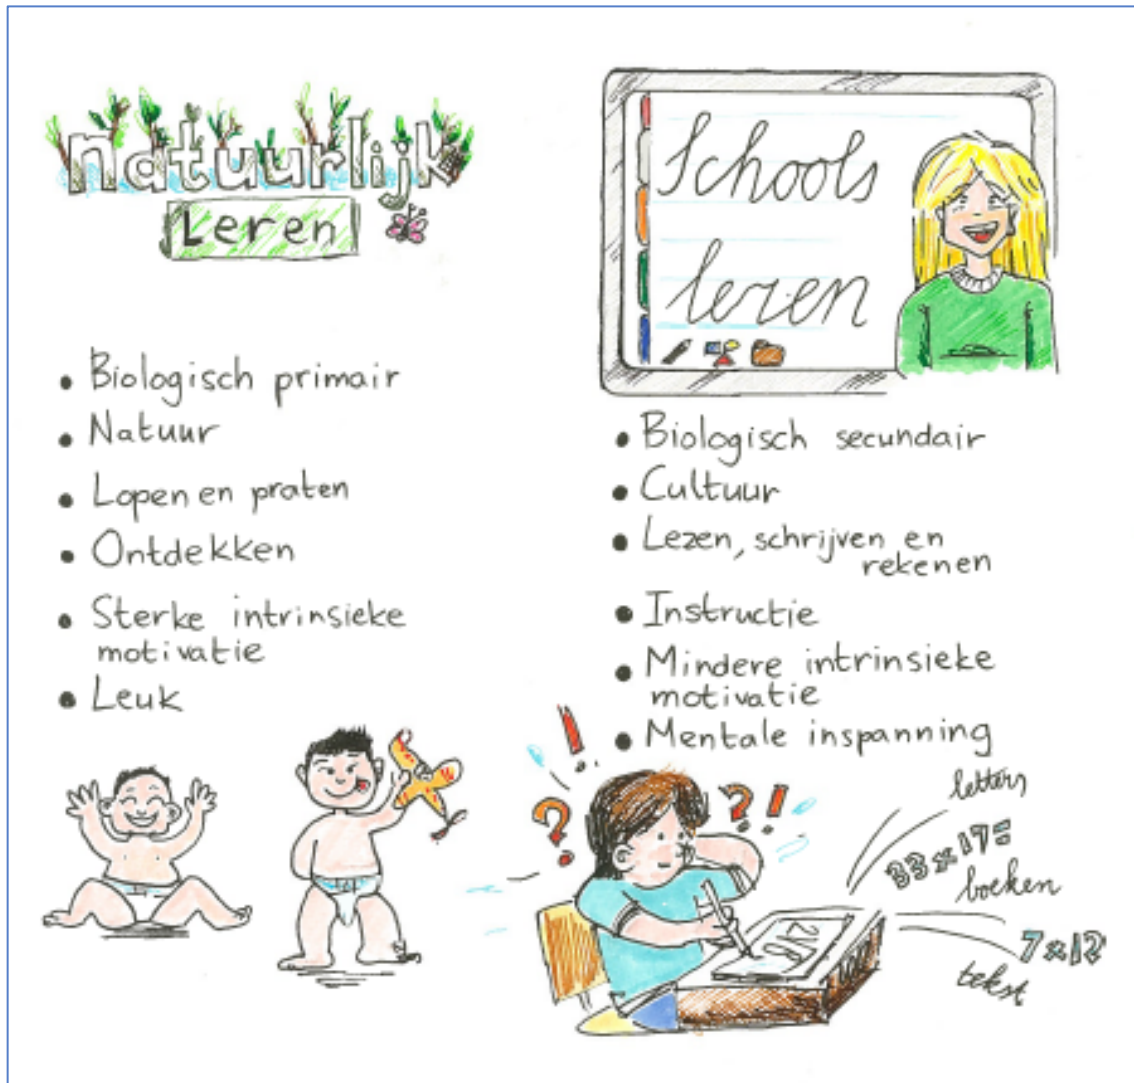 natuurlijk
Leren
Biologisch primair
Natuur
Lopen en praten
Ontdekken
Sterke intrinsieke
motivatie
Leuk
Schools
leren
Biologisch secundair
Cultuur
Lezen, schrijven en
rekenen
Instructie
Mindere intrinsieke
motivatie
Mentale inspanning
!
?
?!
letters
33x17=
boeken
7x12
tekst